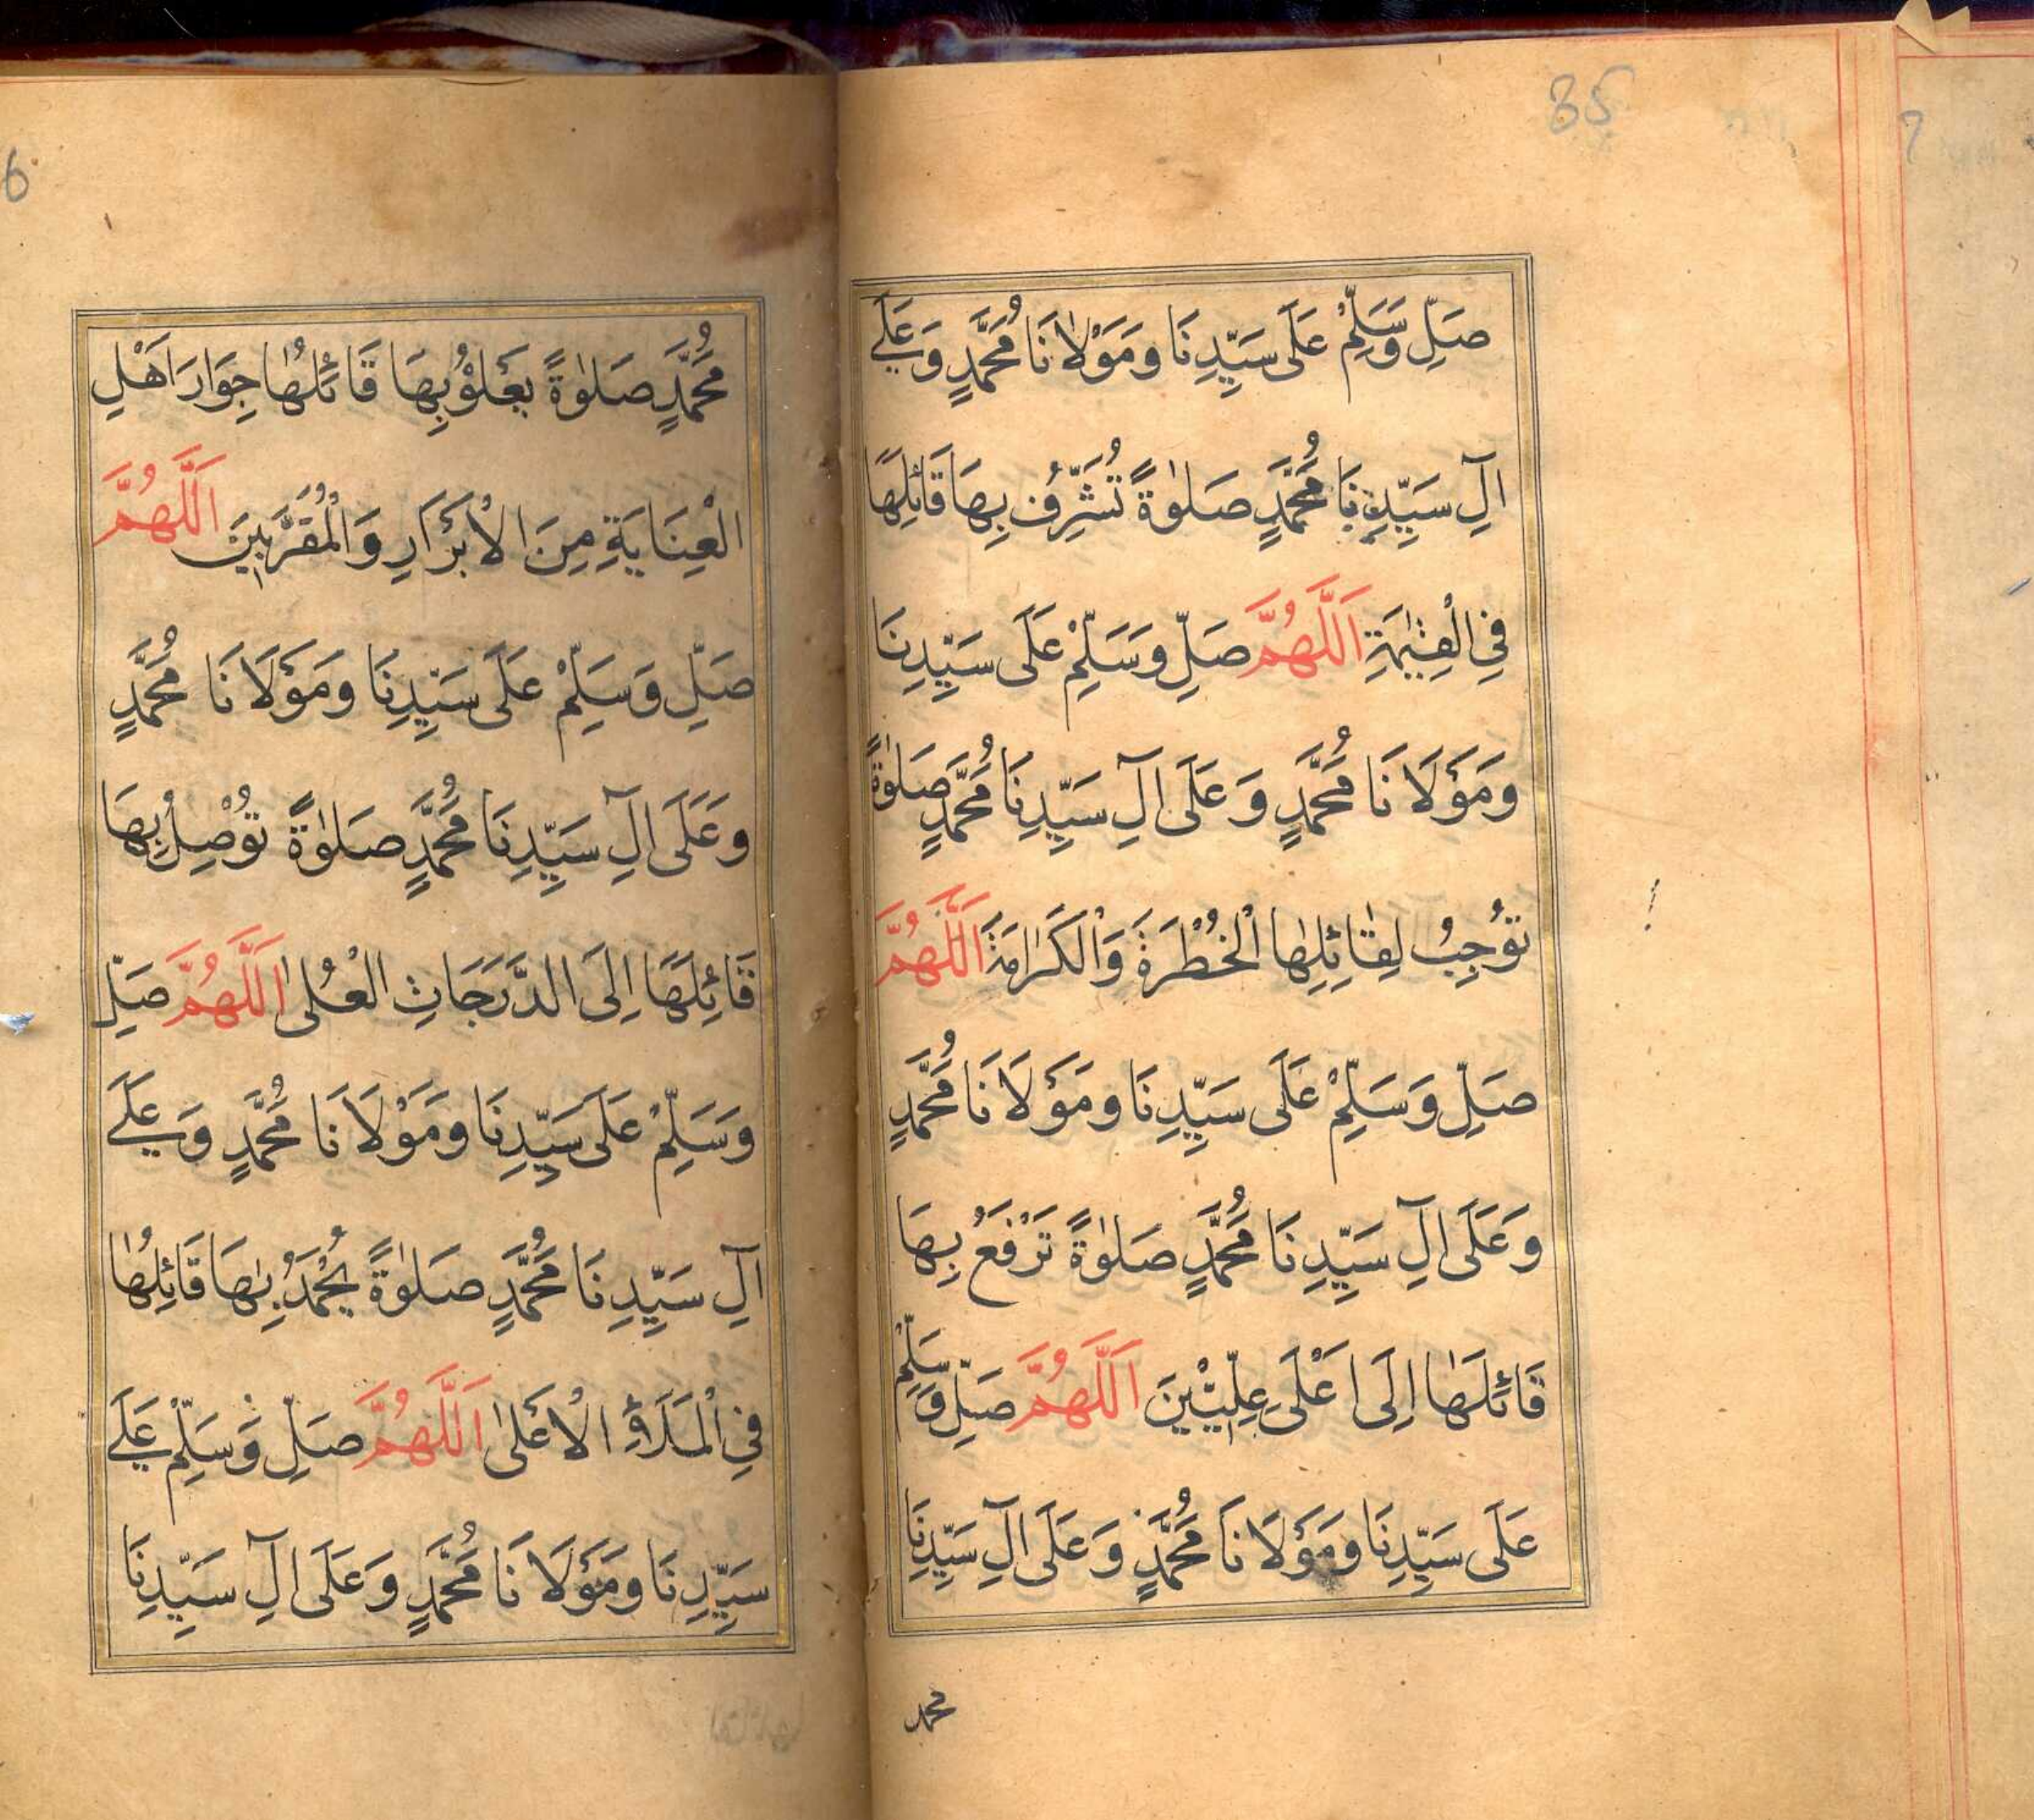 35
صَلِّ وَسَلِّمْ عَلَى سَيِّدِنَا وَمَوْلَانَا مُحَمَّدٍ وَعَلَى
اٰلِ سَيِّدِنَا مُحَمَّدٍ صَلٰوةً تُشَرِّفُ بِهَا قَائِلَهَا
فِي الْقِيٰمَةِ اَللّٰهُمَّ صَلِّ وَسَلِّمْ عَلَى سَيِّدِنَا
وَمَوْلَانَا مُحَمَّدٍ وَعَلَى اٰلِ سَيِّدِنَا مُحَمَّدٍ صَلٰوةً
تُوْجِبُ لِقَائِلِهَا الْخُطْرَةَ وَالْكَرَامَةَ اَللّٰهُمَّ
صَلِّ وَسَلِّمْ عَلَى سَيِّدِنَا وَمَوْلَانَا مُحَمَّدٍ
وَعَلَى اٰلِ سَيِّدِنَا مُحَمَّدٍ صَلٰوةً تَرْفَعُ بِهَا
قَائِلَهَا اِلَى اَعْلَى عِلِّيِّيْنَ اَللّٰهُمَّ صَلِّ وَسَلِّمْ
عَلَى سَيِّدِنَا وَمَوْلَانَا مُحَمَّدٍ وَعَلَى اٰلِ سَيِّدِنَا
محمد
6
مُحَمَّدٍ صَلٰوةً يَعْلُوْ بِهَا قَائِلُهَا جِوَارَ اَهْلِ
الْعِنَايَةِ مِنَ الْاَبْرَارِ وَالْمُقَرَّبِيْنَ اَللّٰهُمَّ
صَلِّ وَسَلِّمْ عَلَى سَيِّدِنَا وَمَوْلَانَا مُحَمَّدٍ
وَعَلَى اٰلِ سَيِّدِنَا مُحَمَّدٍ صَلٰوةً تُوْصِلُ بِهَا
قَائِلَهَا اِلَى الدَّرَجَاتِ الْعُلٰى اَللّٰهُمَّ صَلِّ
وَسَلِّمْ عَلَى سَيِّدِنَا وَمَوْلَانَا مُحَمَّدٍ وَعَلَى
اٰلِ سَيِّدِنَا مُحَمَّدٍ صَلٰوةً يُحْمَدُ بِهَا قَائِلُهَا
فِي الْمَلَاءِ الْاَعْلٰى اَللّٰهُمَّ صَلِّ وَسَلِّمْ عَلَى
سَيِّدِنَا وَمَوْلَانَا مُحَمَّدٍ وَعَلَى اٰلِ سَيِّدِنَا